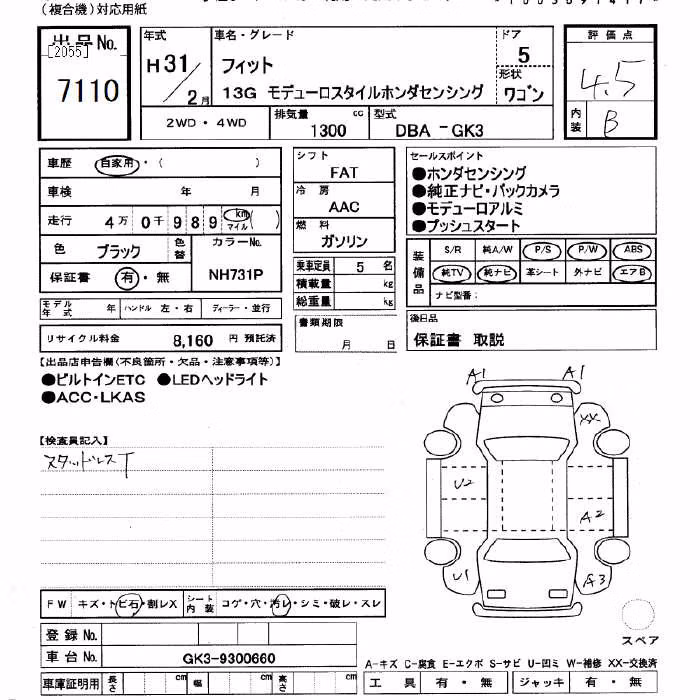 (複合機)対応用紙
出品No.
[2055]
7110
年式
H31/2月
車名・グレード
フィット
13G モデューロスタイルホンダセンシング
ドア
5
形状
ワゴン
評価点
4.5
内装
B
2WD・4WD
排気量
1300 cc
型式
DBA -GK3
車歴 自家用・( )
車検 年 月
走行 4万 0千 989 km マイル ( )
色 ブラック 色替
カラーNo.
NH731P
保証書 有・無
シフト
FAT
冷房
AAC
燃料
ガソリン
乗車定員 5 名
積載量 kg
総重量 kg
セールスポイント
●ホンダセンシング
●純正ナビ・バックカメラ
●モデューロアルミ
●プッシュスタート
装備品
S/R 純A/W P/S P/W ABS
純TV 純ナビ 革シート 外ナビ エアB
ナビ型番:
モデル年式 年 ハンドル 左・右 ディーラー・並行
リサイクル料金 8,160 円 預託済
書類期限
月 日
後日品
保証書 取説
【出品店申告欄(不良箇所・欠品・注意事項等)】
●ビルトインETC ●LEDヘッドライト
●ACC・LKAS
【検査員記入】
スタッドレスT
A1 A1
XX
U2
A2
U1 A3
スペア
FW キズ・トビ石・割レX
シート内装 コゲ・穴・汚レ・シミ・破レ・スレ
登録No.
車台No. GK3-9300660
車庫証明用 長さ cm 幅 cm 高さ cm
A-キズ C-腐食 E-エクボ S-サビ U-凹ミ W-補修 XX-交換済
工具 有・無 ジャッキ 有・無